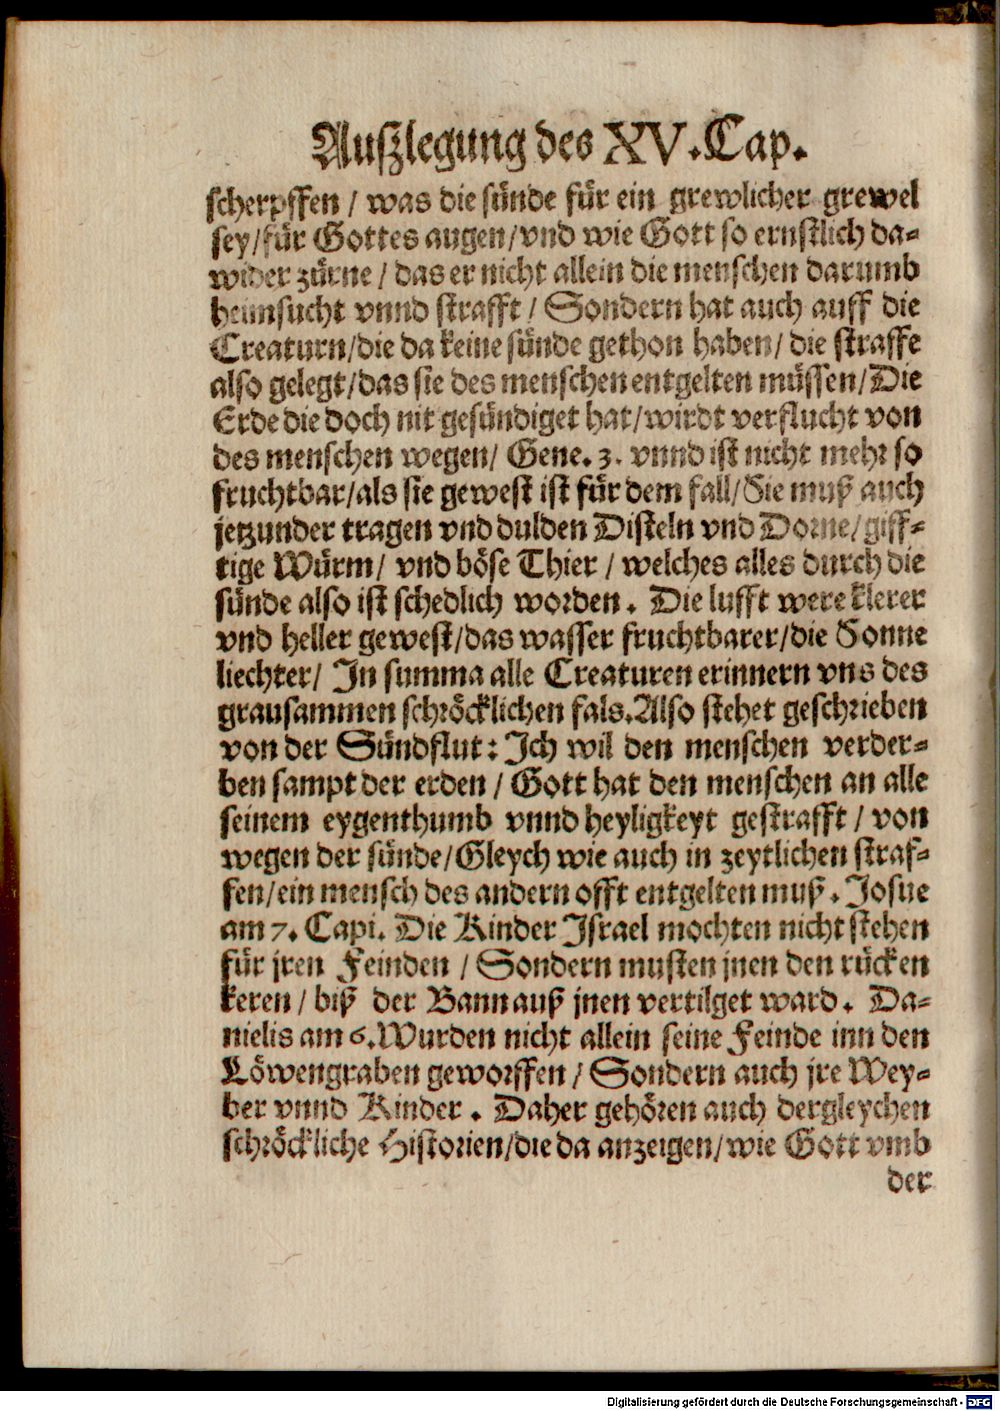 Auſzlegung des XV. Cap.
ſcherpffen / was die ſünde für ein grewlicher grewel
ſey/für Gottes augen/vnd wie Gott ſo ernſtlich da-
wider zürne / das er nicht allein die menſchen darumb
heimſucht vnnd ſtrafft / Sondern hat auch auff die
Creaturn/die da keine ſünde gethon haben/ die ſtraffe
alſo gelegt/das ſie des menſchen entgelten müſſen/Die
Erde die doch nit geſündiget hat/wirdt verflucht von
des menſchen wegen/ Gene. 3. vnnd iſt nicht mehr ſo
fruchtbar/als ſie geweſt iſt für dem fall/Sie muß auch
jetzunder tragen vnd dulden Diſteln vnd Dorne/giff-
tige Würm/ vnd böſe Thier / welches alles durch die
ſünde alſo iſt ſchedlich worden. Die lufft were klerer
vnd heller geweſt/das waſſer fruchtbarer/die Sonne
liechter/ In ſumma alle Creaturen erinnern vns des
grauſammen ſchröcklichen fals. Alſo ſtehet geſchrieben
von der Sündflut: Ich wil den menſchen verder-
ben ſampt der erden / Gott hat den menſchen an alle
ſeinem eygenthumb vnnd heyligkeyt geſtrafft / von
wegen der ſünde/Gleych wie auch in zeytlichen ſtraf-
fen/ein menſch des andern offt entgelten muß. Joſue
am 7. Capi. Die Kinder Iſrael mochten nicht ſtehen
für jren Feinden / Sondern muſten jnen den rücken
keren / biß der Bann auß jnen vertilget ward. Da-
nielis am 6. Wurden nicht allein ſeine Feinde inn den
Löwengraben geworffen / Sondern auch jre Wey-
ber vnnd Kinder. Daher gehören auch dergleychen
ſchröckliche Hiſtorien/die da anzeigen/wie Gott vmb
der
Digitalisierung gefördert durch die Deutsche Forschungsgemeinschaft - DFG